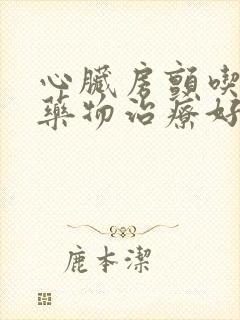 心臟房顫喫
藥物治療好
鹿本潔